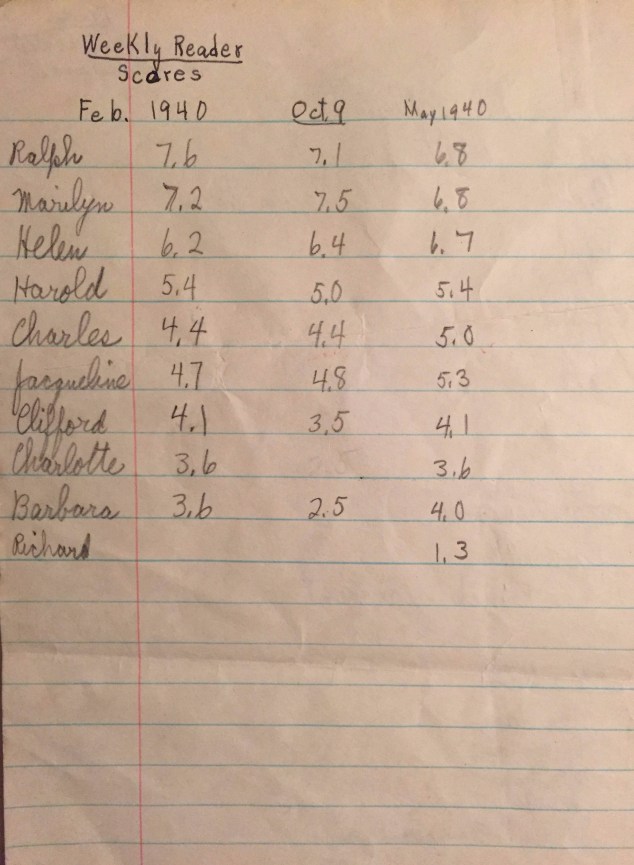 Weekly Reader
Scores
Feb. 1940 Oct 9 May 1940
Ralph 7.6 7.1 6.8
Marilyn 7.2 7.5 6.8
Helen 6.2 6.4 6.7
Harold 5.4 5.0 5.4
Charles 4.4 4.4 5.0
Jacqueline 4.7 4.8 5.3
Clifford 4.1 3.5 4.1
Charlotte 3.6 3.6
Barbara 3.6 2.5 4.0
Richard 1.3